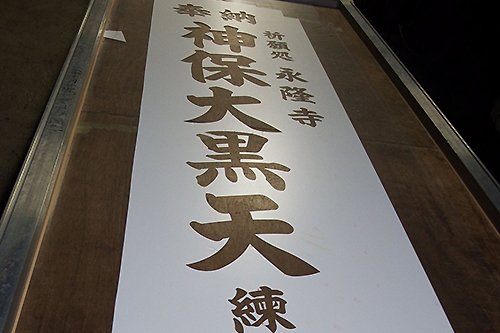 奉納
神保大黒天
祈願処 永隆寺
練